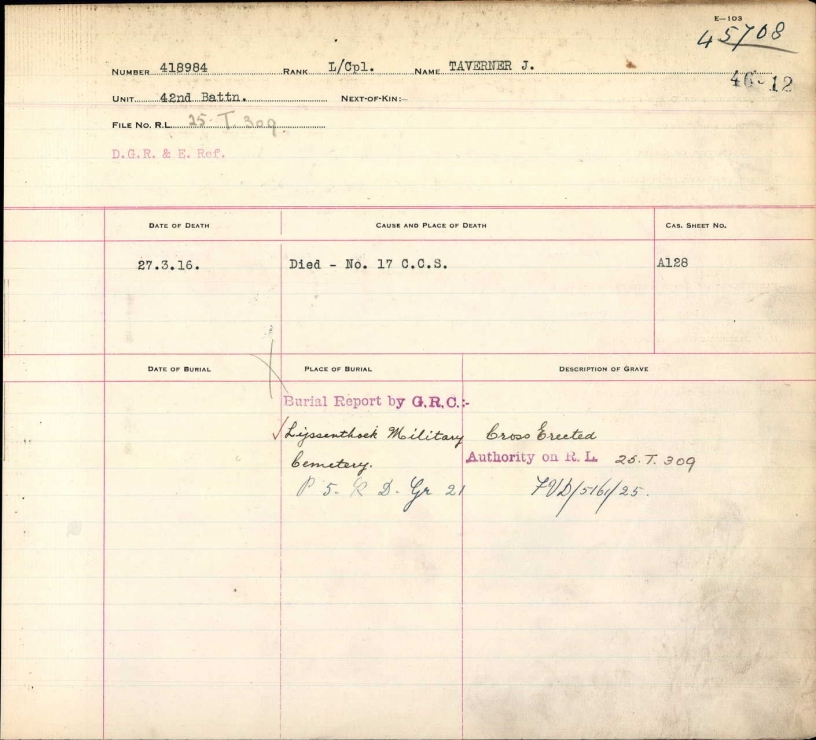 E—103
45708
NUMBER 418984 RANK L/Cpl. NAME TAVERNER J.
46-12
UNIT 42nd Battn. NEXT-OF-KIN:—
FILE NO. R.L. 25. T. 309.
D.G.R. & E. Ref.
DATE OF DEATH CAUSE AND PLACE OF DEATH CAS. SHEET NO.
27.3.16. Died - No. 17 C.C.S. A128
DATE OF BURIAL PLACE OF BURIAL DESCRIPTION OF GRAVE
Burial Report by G.R.C.:-
Lijssenthoek Military Cross Erected
Cemetery. Authority on R. L. 25.T.309
P 5. R D. Gr 21 /5161/25.